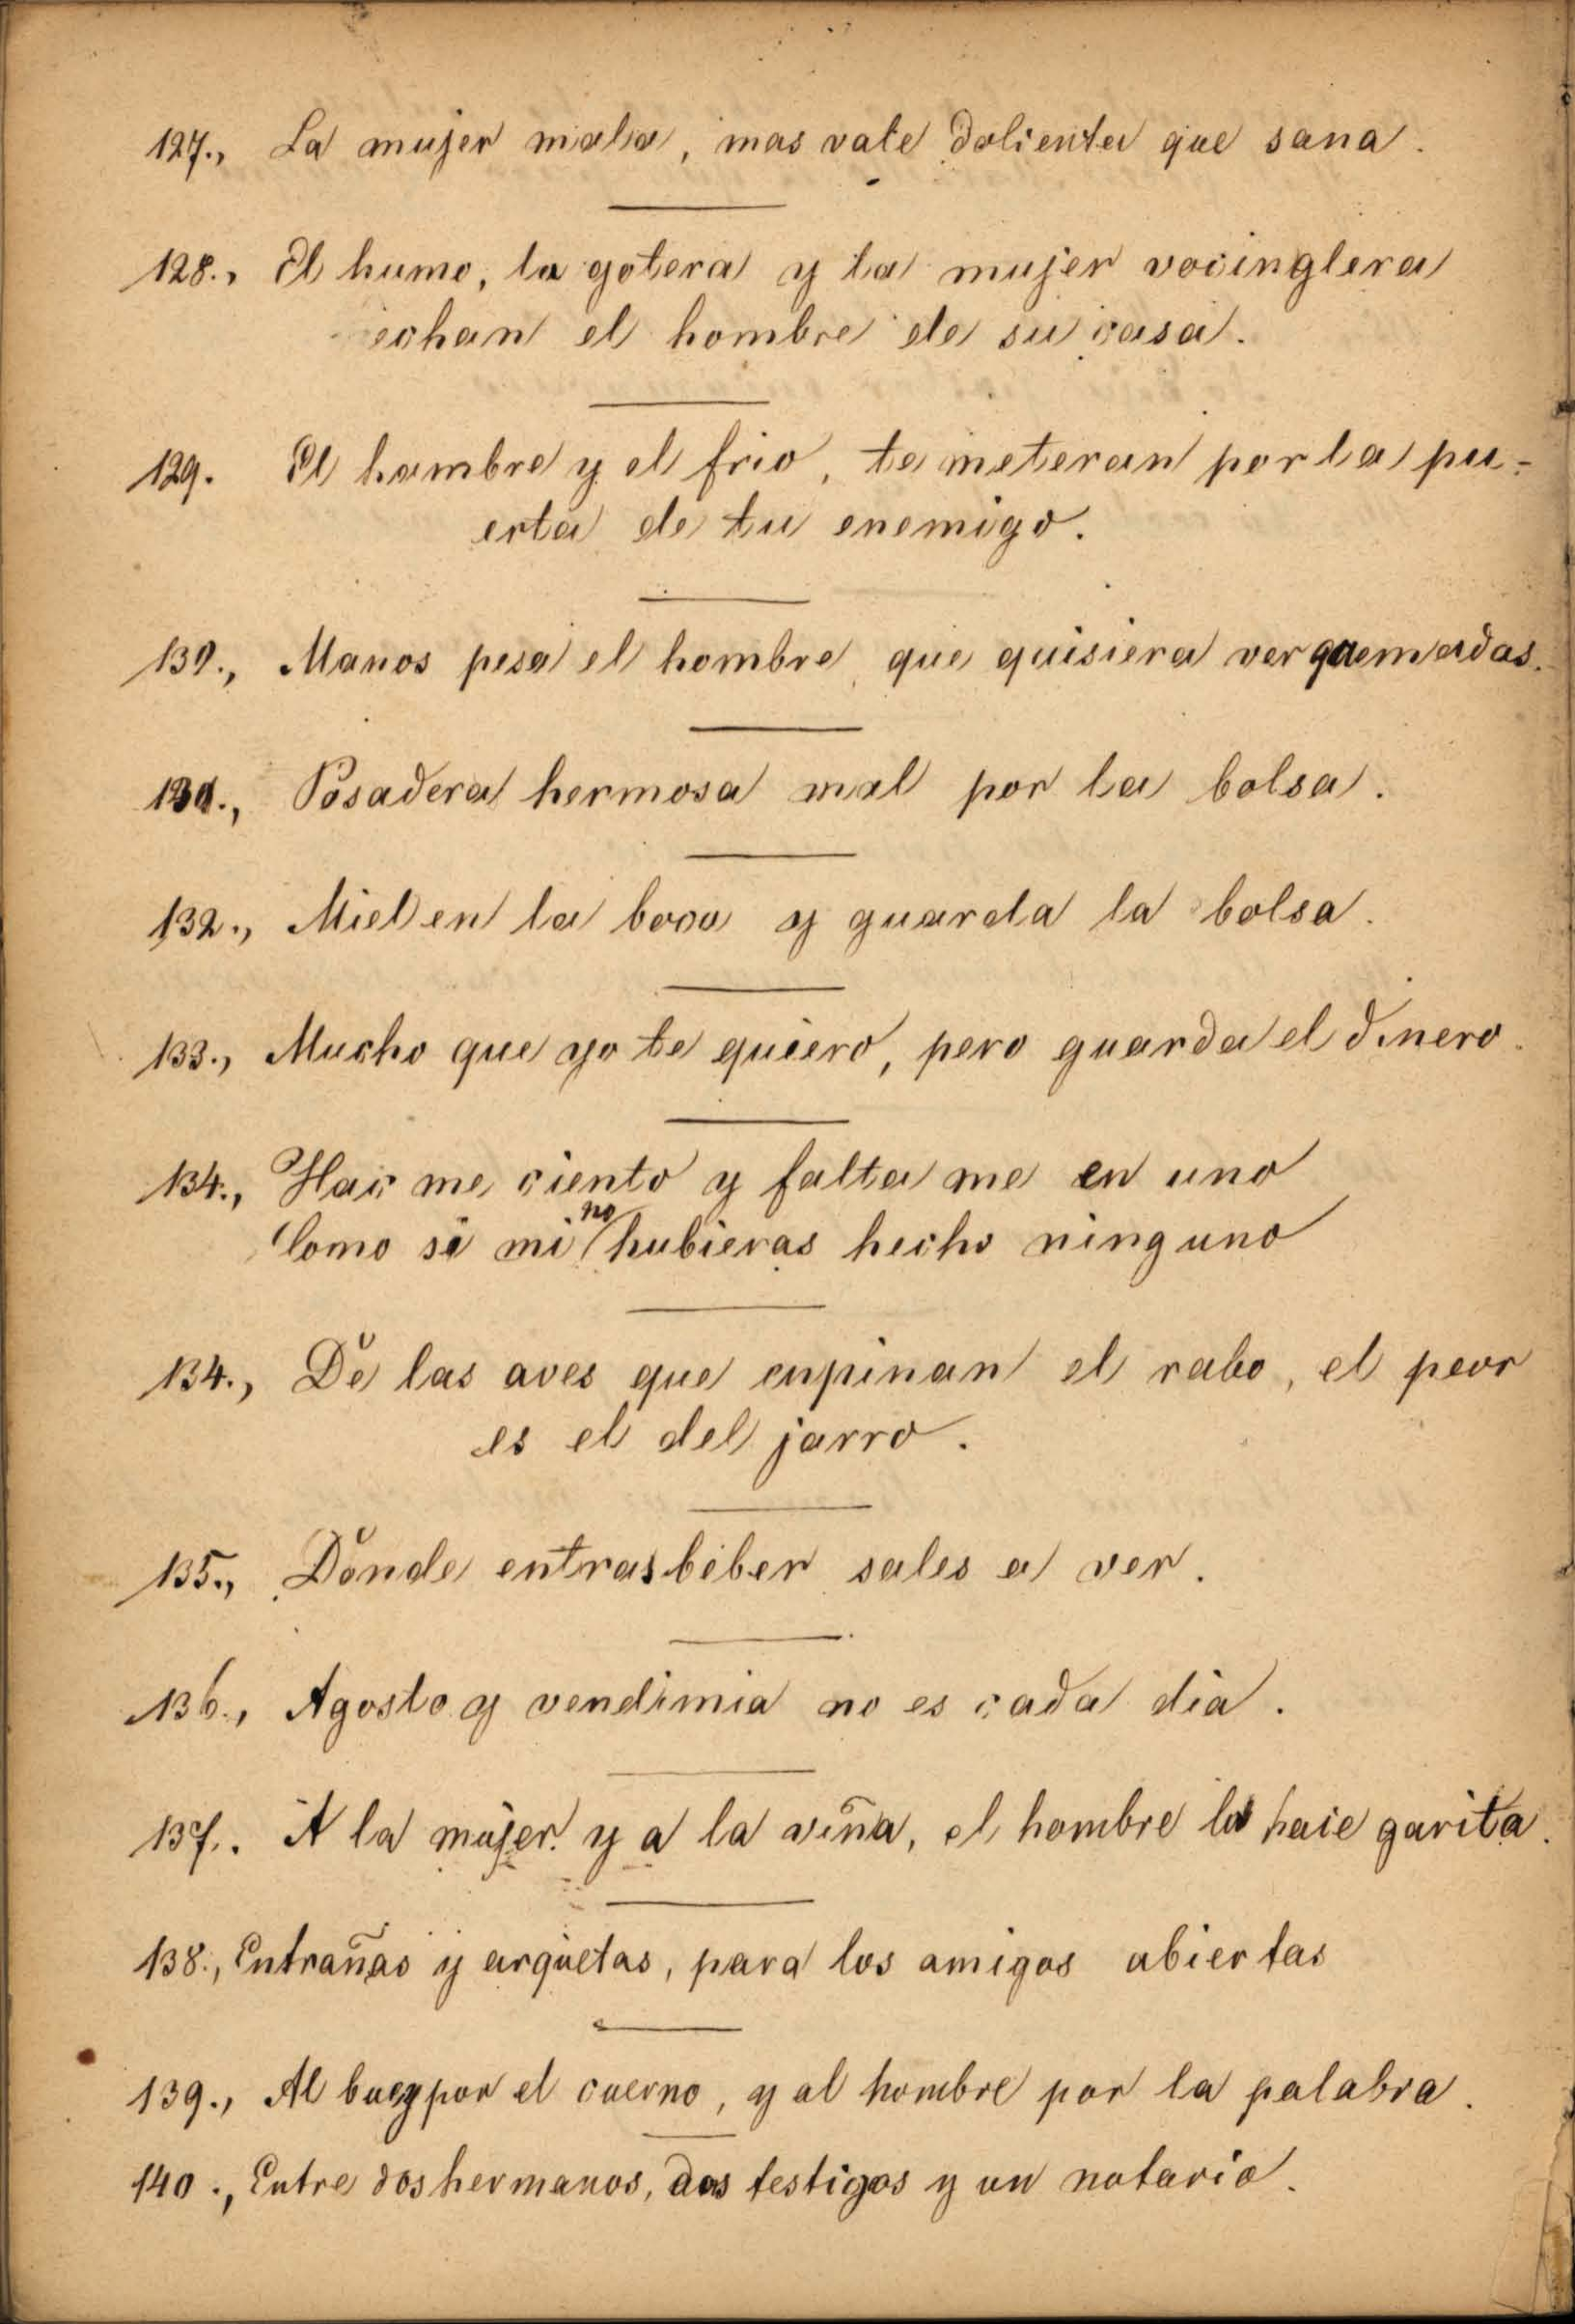 127., La mujer mala, mas vale dolienta que sana.
128., El humo, la gotera y la mujer vocinglera
echan el hombre de su casa.
129. El hambre y el frio, te meteran por la pu-
erta de tu enemigo.
130., Manos pesa el hombre, que quisiera ver quemadas.
131., Posadera hermosa mal por la bolsa.
132., Miel en la boca y guarda la bolsa.
133., Mucho que yo te quiero, pero guarda el dinero.
134., Hac me ciento y falta me en uno
Como si mi no hubieras hecho ninguno
134., De las aves que enpinan el rabo, el peor
es el del jarro.
135., Donde entras beber sales a ver.
136., Agosto y vendimia no es cada dia.
137. A la mujer y a la viña, el hombre la hace garita.
138., Entrañas y arquetas, para los amigos abiertas
139., Al buey por el cuerno, y al hombre por la palabra.
140., Entre dos hermanos, dos testigos y un notario.